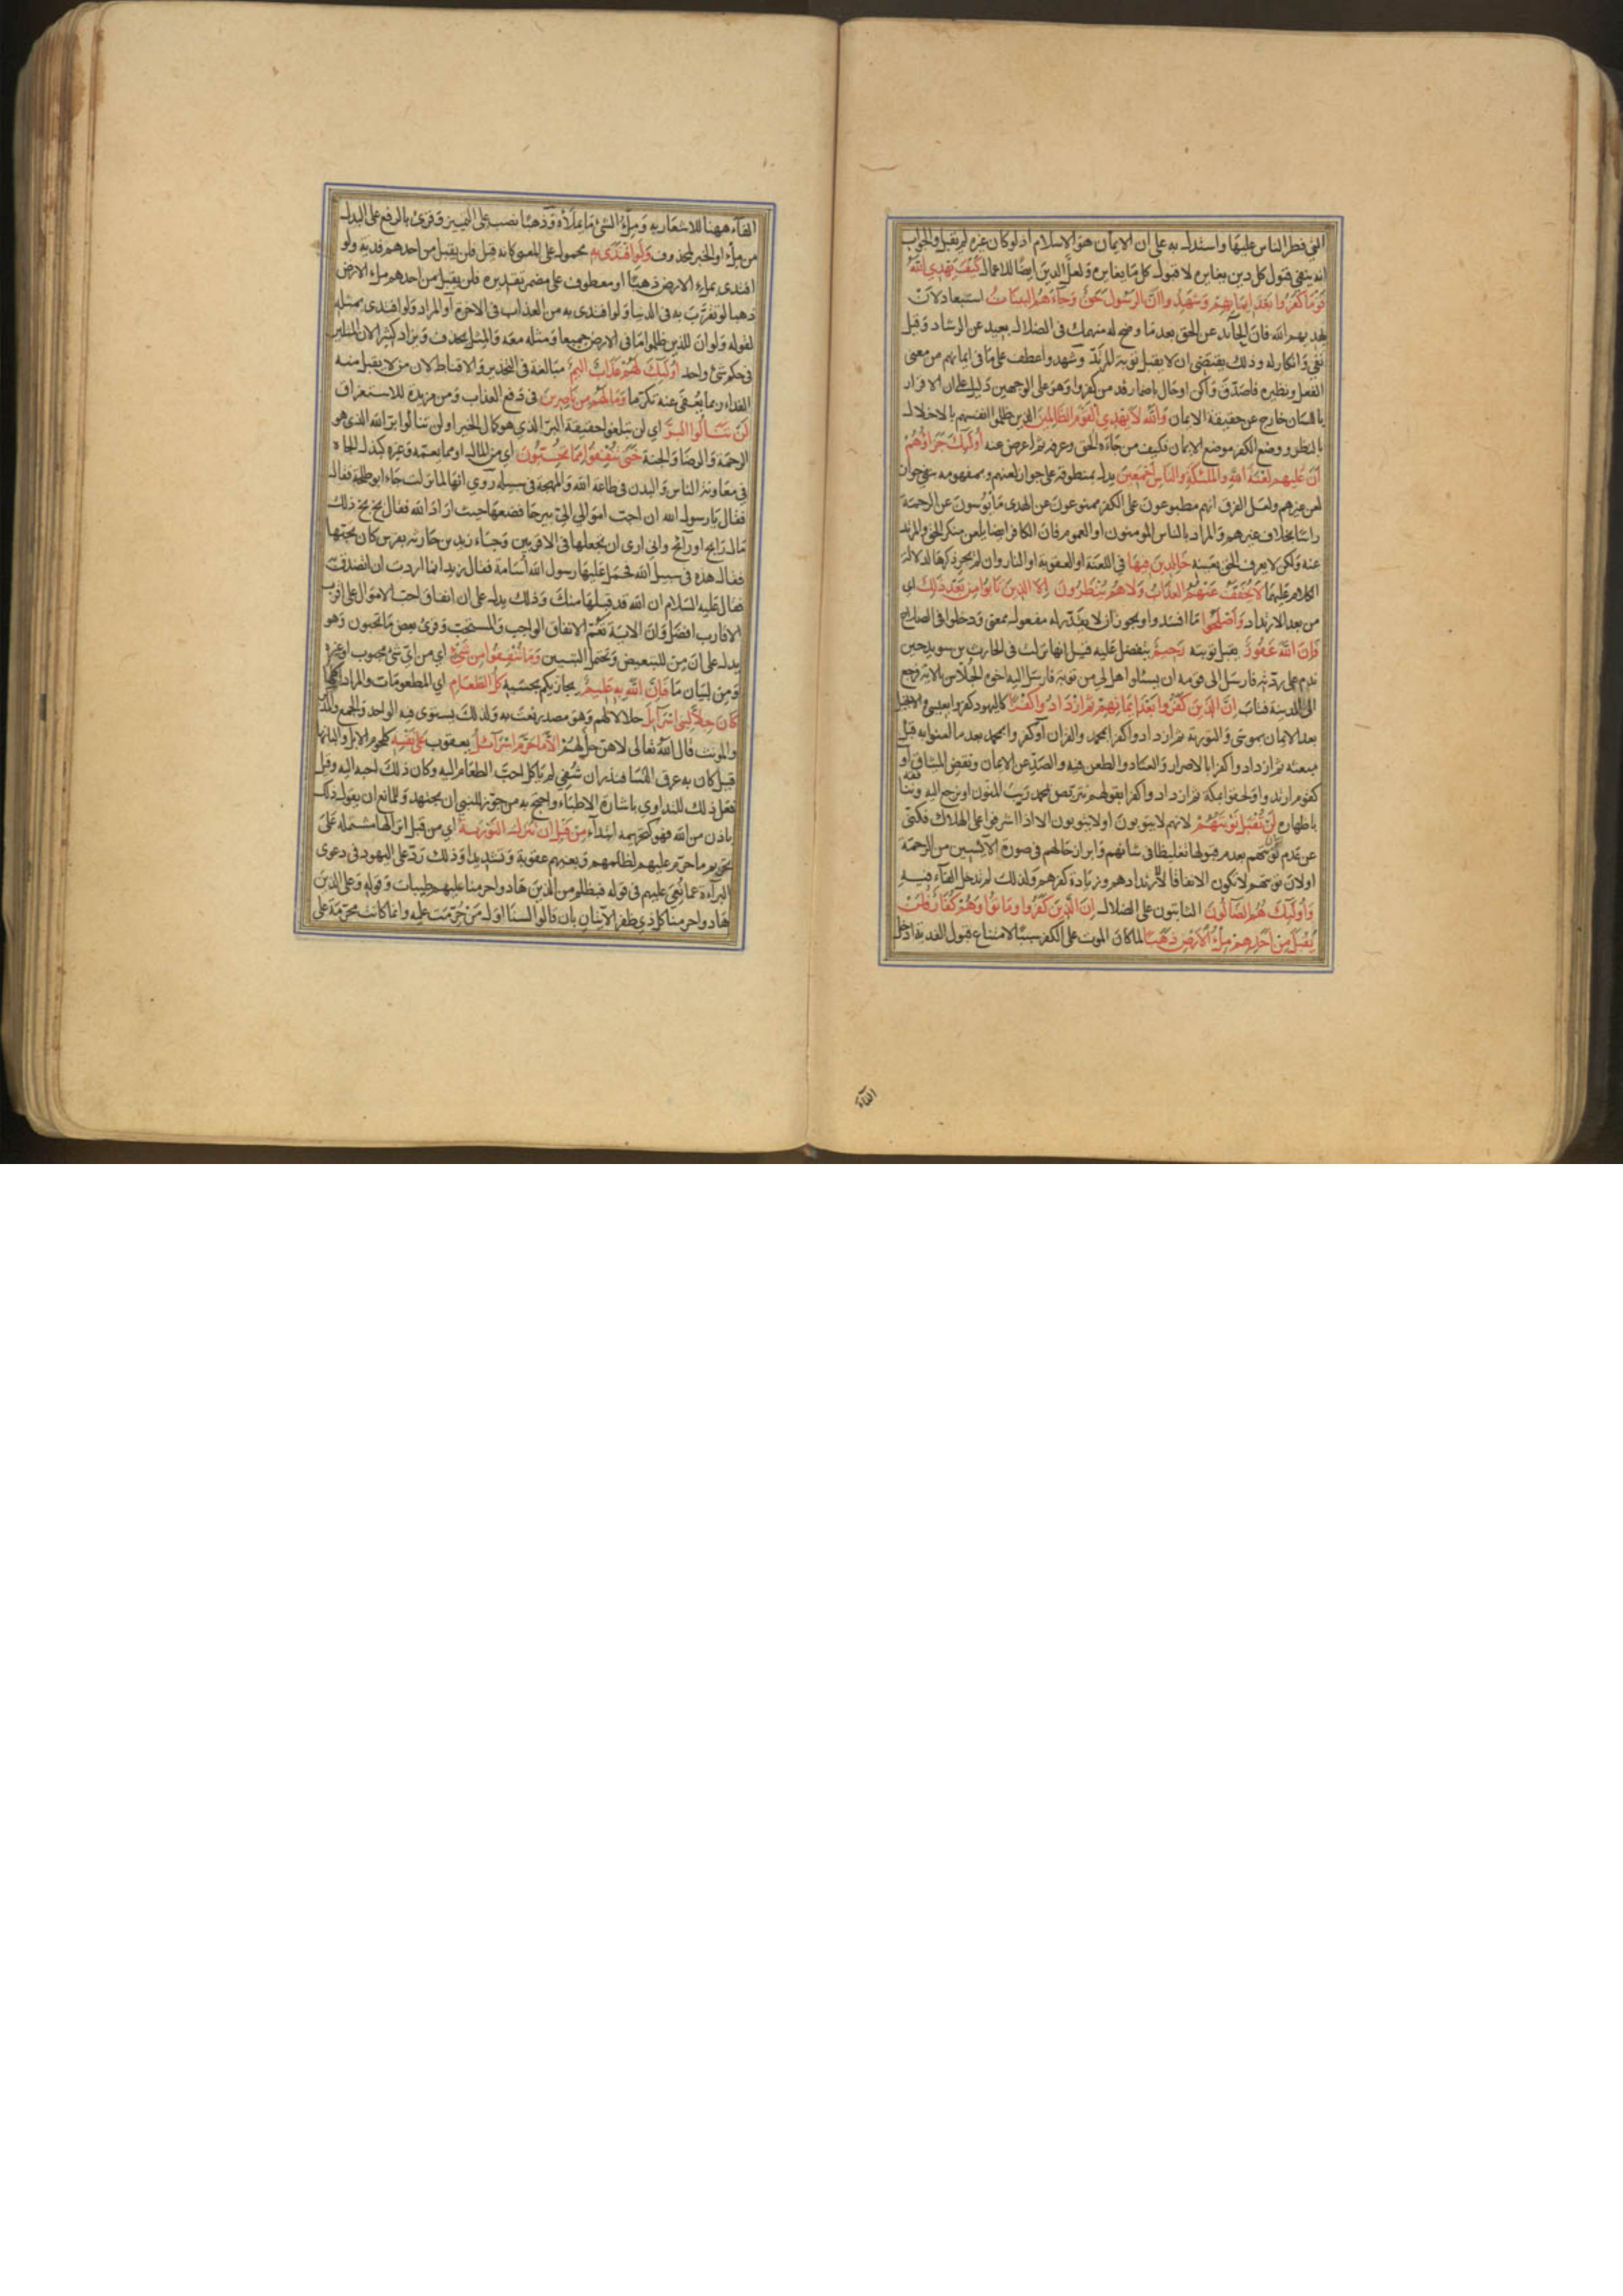 التي فطر الناس عليها واستدل به على ان الايمان هو الاسلام اذ لو كان غيره لم يقبل والجواب
انه ينفي قبول كل دين يغايره لا قبول كل ما يغايره ولعل الدين ايضا للاعمال كَيْفَ يَهْدِي اللّٰهُ
قَوْمًا كَفَرُوا بَعْدَ اِيمَانِهِمْ وَشَهِدُوا اَنَّ الرَّسُولَ حَقٌّ وَجَاءَهُمُ البَيِّنَاتُ استبعاد لان
يهديهم الله فان الحائد عن الحق بعد ما وضح له منهمك في الضلال بعيد عن الرشاد وقيل
نفي وانكار له وذلك يقتضي ان لا يقبل توبة المرتد وشهدوا عطف على ما في ايمانهم من معنى
الفعل ونظيره فاصدق واكن او حال باضمار قد من كفروا وهو على الوجهين دليل على ان الاقرار
باللسان خارج عن حقيقة الايمان وَاللّٰهُ لَا يَهْدِي القَوْمَ الظَّالِمِينَ الذين ظلموا انفسهم بالاخلال
بالنظر ووضع الكفر موضع الايمان فكيف من جاءه الحق وعرفه ثم اعرض عنه اُولٰئِكَ جَزَاؤُهُمْ
اَنَّ عَلَيهِم لَعْنَةَ اللّٰهِ والمَلٰئِكَةِ والنَّاسِ اَجْمَعِينَ يدل بمنطوقه على جواز لعنهم وبمفهومه ينفي جواز
لعن غيرهم ولعل الفرق انهم مطبوعون على الكفر ممنوعون عن الهدى مايوسون عن الرحمة
راسا بخلاف غيرهم والمراد بالناس المومنون او العموم فان الكافر ايضا يلعن منكر الحق والمرتد
عنه ولكن لا يعرف الحق بعينه خَالِدِينَ فِيهَا في اللعنة او العقوبة او النار وان لم يجر ذكرها لدلالة
الكلام عليها لَا يُخَفَّفُ عَنْهُمُ العَذَابُ وَلَا هُمْ يُنْظَرُونَ اِلَّا الَّذِينَ تَابُوا مِنْ بَعْدِ ذٰلِكَ اي
من بعد الارتداد وَاَصْلَحُوا ما افسدوا ويجوز ان لا يقدر له مفعول بمعنى ودخلوا في الصلاح
فَاِنَّ اللّٰهَ غَفُورٌ يقبل توبته رَحِيمٌ يتفضل عليه قيل انها نزلت في الحارث بن سويد حين
ندم على ردته فارسل الى قومه ان يسئلوا هل لي من توبة فارسل اليه اخوه الجلاس بالاية فرجع
الى المدينة فتاب اِنَّ الَّذِينَ كَفَرُوا بَعْدَ اِيمَانِهِمْ ثُمَّ ازْدَادُوا كُفْرًا كاليهود كفروا بعيسى والانجيل
بعد الايمان بموسى والتورية ثم ازدادوا كفرا بمحمد والقران او كفروا بمحمد بعد ما امنوا به قبل
مبعثه ثم ازدادوا كفرا بالاصرار والعناد والطعن فيه والصد عن الايمان ونقض الميثاق او
كقوم ارتدوا ولحقوا بمكة ثم ازدادوا كفرا بقولهم نتربص بمحمد ريب المنون او نرجع اليه وننافقه
باظهاره لَنْ تُقْبَلَ تَوْبَتُهُمْ لانهم لا يتوبون او لا يتوبون الا اذا اشرفوا على الهلاك فكنى
عن عدم توبتهم بعدم قبولها تغليظا في شانهم وابراز حالهم في صورة الآيسين من الرحمة
او لان توبتهم لا تكون الا نفاقا لا لارتدادهم وزيادة كفرهم ولذلك لم تدخل الفاء فيه
وَاُولٰئِكَ هُمُ الضَّالُّونَ الثابتون على الضلال اِنَّ الَّذِينَ كَفَرُوا وَمَاتُوا وَهُمْ كُفَّارٌ فَلَنْ
يُقْبَلَ مِنْ اَحَدِهِمْ مِلْءُ الْاَرْضِ ذَهَبًا لما كان الموت على الكفر سببا لامتناع قبول الفدية ادخل
الفاء
الفاء ههنا للاشعار به وملء الشئ ما يملاه وذهبا نصب على التمييز وقرئ بالرفع على البدل
من ملء او الخبر لمحذوف وَلَوِ افْتَدٰى بِهِ محمول على المعنى كانه قيل فلن يقبل من احدهم فدية ولو
افتدى بملء الارض ذهبا او معطوف على مضمر تقديره فلن يقبل من احدهم ملء الارض
ذهبا لو تقرب به في الدنيا ولو افتدى به من العذاب في الاخرة او المراد ولو افتدى بمثله
لقوله ولو ان للذين ظلموا ما في الارض جميعا ومثله معه والمثل يحذف ويزاد كثيرا لان المثلين
في حكم شئ واحد اُولٰئِكَ لَهُمْ عَذَابٌ اَلِيمٌ مبالغة في التحذير والاقناط لان من لا يقبل منه
الفداء ربما يعفى عنه تكرما وَمَا لَهُمْ مِنْ نَاصِرِينَ في دفع العذاب ومن مزيدة للاستغراق
لَنْ تَنَالُوا البِرَّ اي لن تبلغوا حقيقة البر الذي هو كمال الخير او لن تنالوا بر الله الذي هو
الرحمة والرضا والجنة حَتّٰى تُنْفِقُوا مِمَّا تُحِبُّونَ اي من المال او مما يعمه وغيره كبذل الجاه
في معاونة الناس والبدن في طاعة الله والمهجة في سبيله روي انها لما نزلت جاء ابو طلحة فقال
فقال يا رسول الله ان احب اموالي الي بيرحا فضعها حيث اراد الله فقال بخ بخ ذلك
مال رابح او رائح واني ارى ان تجعلها في الاقربين وجاء زيد بن حارثه بفرس كان يحبها
فقال هذه في سبيل الله فحمل عليها رسول الله اسامة فقال زيد انما اردت ان اتصدق
فقال عليه السلام ان الله قد قبلها منك وذلك يدل على ان انفاق احب الاموال على اقرب
الاقارب افضل وان الاية تعم الانفاق الواجب والمستحب وقرئ بعض ما تحبون وهو
يدل على ان من للتبعيض وتحتمل التبيين وَمَا تُنْفِقُوا مِنْ شَيْءٍ اي من اي شئ محبوب او غيره
ومن لبيان ما فَاِنَّ اللّٰهَ بِهِ عَلِيمٌ يجازيكم بحسبه كُلُّ الطَّعَامِ اي المطعومات والمراد اكلها
كَانَ حِلًّا لِبَنِي اِسْرَائِلَ حلالا لهم وهو مصدر نعت به ولذلك يستوى فيه الواحد والجمع والمذكر
والمونث قال الله تعالى لا هن حل لهم اِلَّا مَا حَرَّمَ اِسْرَائِلُ يعقوب عَلٰى نَفْسِهِ كلحوم الابل والبانها
قيل كان به عرق النسا فنذر ان شفي لم ياكل احب الطعام اليه وكان ذلك احبه اليه وقيل
فعل ذلك للتداوي باشارة الاطباء واحتج به من جوز للنبي ان يجتهد وللمانع ان يقول ذلك
باذن من الله فهو كتحريمه ابتداء مِنْ قَبْلِ اَنْ تُنَزَّلَ التَّوْرٰيةُ اي من قبل انزالها مشتملة على
تحريم ما حرم عليهم لظلمهم وبغيهم عقوبة وتشديدا وذلك رد على اليهود في دعوى
البراءة عما نعي عليهم في قوله فبظلم من الذين هادوا حرمنا عليهم طيبات وقوله وعلى الذين
هادوا حرمنا كل ذي ظفر الآيتان بان قالوا لسنا اول من حرمت عليه وانما كانت محرمة على